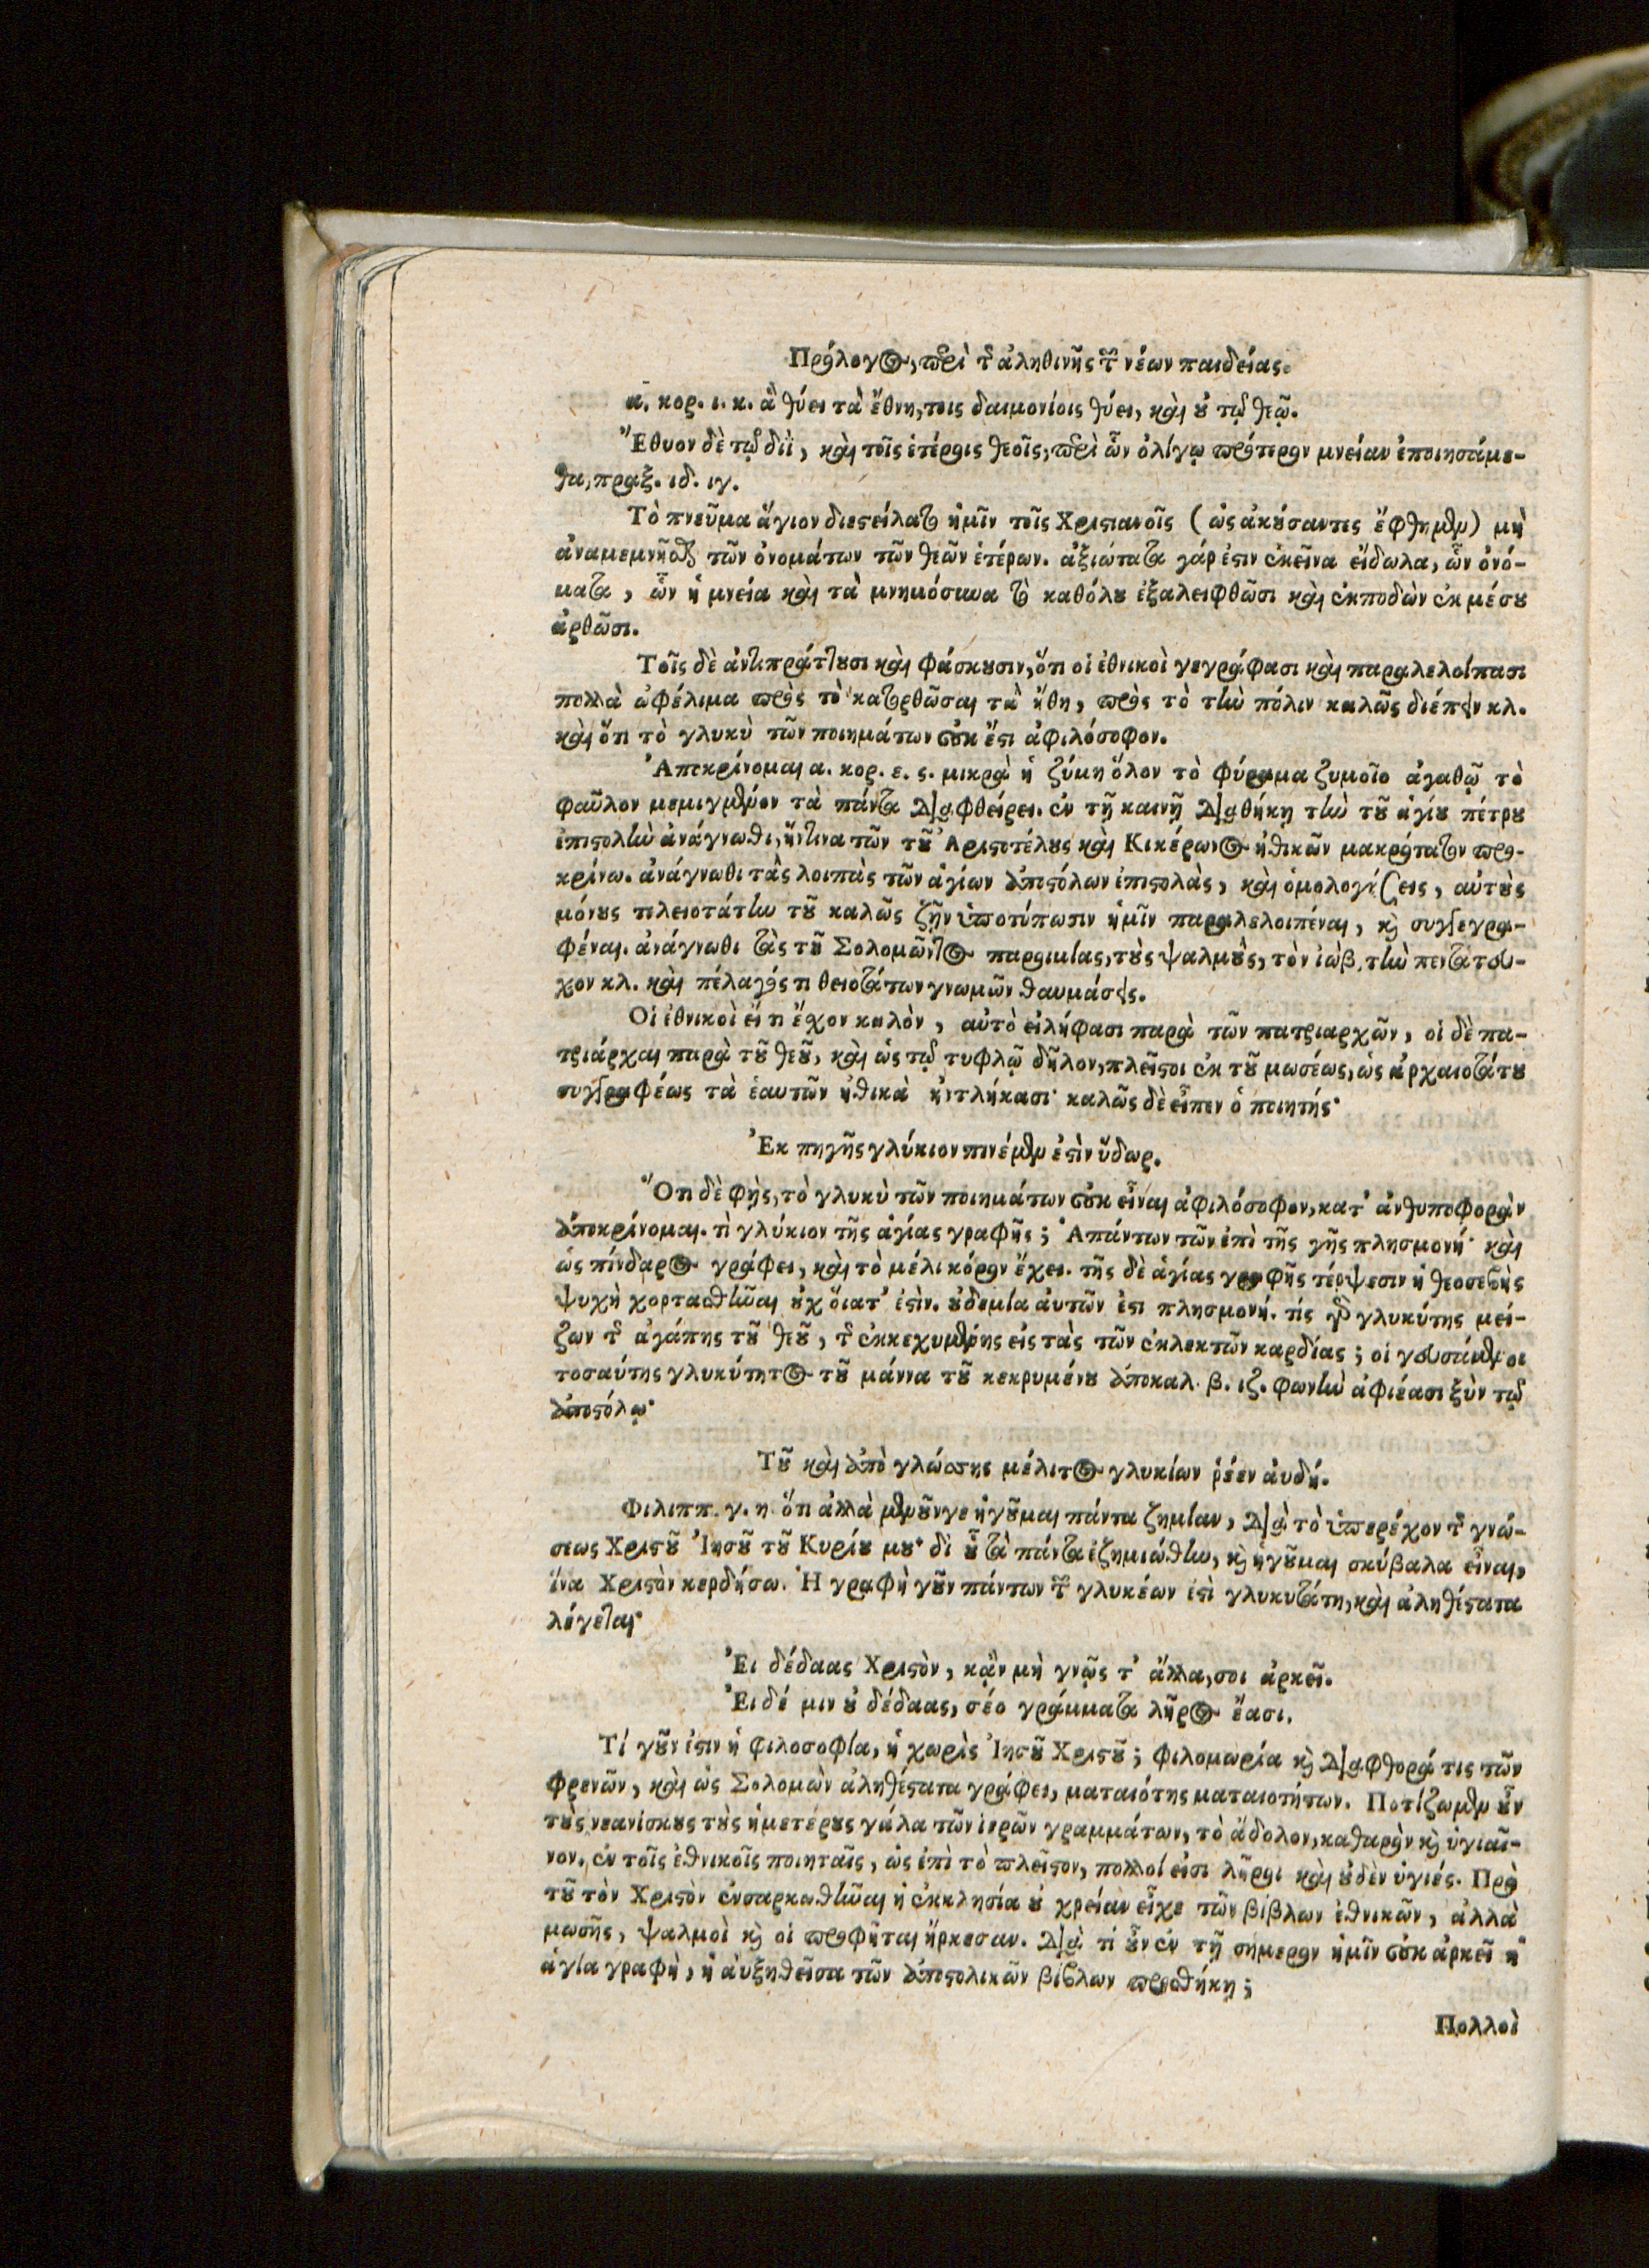 Πρόλογος, περὶ τῆς ἀληθινῆς τῶν νέων παιδείας.
α. κορ. ι. κ. ἃ θύει τὰ ἔθνη, τοις δαιμονίοις θύει, καὶ οὐ τῷ θεῷ.
Ἔθυον δὲ τῷ διῒ, καὶ τοῖς ἑτέροις θεοῖς, περὶ ὧν ὀλίγῳ πρότερον μνείαν ἐποιησάμε-
θα, πραξ. ιδ. ιγ.
Τὸ πνεῦμα ἅγιον διεστείλατο ἡμῖν τοῖς Χριστιανοῖς (ὡς ἀκούσαντες ἔφθημεν) μὴ
ἀναμεμνῆσθαι τῶν ὀνομάτων τῶν θεῶν ἑτέρων. ἀξιώτατα γάρ ἐστιν ἐκεῖνα εἴδωλα, ὧν ὀνό-
ματα, ὧν ἡ μνεία καὶ τὰ μνημόσυνα τὸ καθόλου ἐξαλειφθῶσι καὶ ἐκποδὼν ἐκ μέσου
ἀρθῶσι.
Τοῖς δὲ ἀντιπράττουσι καὶ φάσκουσιν, ὅτι οἱ ἐθνικοὶ γεγράφασι καὶ παραλελοίπασι
πολλὰ ὠφέλιμα πρὸς τὸ κατορθῶσαι τὰ ἤθη, πρὸς τὸ τὴν πόλιν καλῶς διέπειν κλ.
καὶ ὅτι τὸ γλυκὺ τῶν ποιημάτων οὐκ ἔστι ἀφιλόσοφον.
Ἀποκρίνομαι α. κορ. ε. ς. μικρὰ ἡ ζύμη ὅλον τὸ φύραμα ζυμοῖο ἀγαθῷ τὸ
φαῦλον μεμιγμένον τὰ πάντα διαφθείρει. ἐν τῇ καινῇ διαθήκῃ τὴν τοῦ ἁγίου πέτρου
ἐπιστολὴν ἀνάγνωθι, ἥντινα τῶν τοῦ Ἀριστοτέλους καὶ Κικέρωνος ἠθικῶν μακρότατον προ-
κρίνω. ἀνάγνωθι τὰς λοιπὰς τῶν ἁγίων ἀποστόλων ἐπιστολὰς, καὶ ὁμολογήσεις, αὐτοὺς
μόνους τελειοτάτην τοῦ καλῶς ζῆν ὑποτύπωσιν ἡμῖν παραλελοιπέναι, καὶ συγγεγρα-
φέναι. ἀνάγνωθι τὰς τοῦ Σολομῶντος παροιμίας, τοὺς ψαλμοὺς, τὸν ἰώβ, τὴν πεντάτευ-
χον κλ. καὶ πέλαγός τι θειοτάτων γνωμῶν θαυμάσεις.
Οἱ ἐθνικοὶ εἴ τι ἔχον καλὸν, αὐτὸ εἰλήφασι παρὰ τῶν πατριαρχῶν, οἱ δὲ πα-
τριάρχαι παρὰ τοῦ θεοῦ, καὶ ὡς τῷ τυφλῷ δῆλον, πλεῖστοι ἐκ τοῦ μωσέως, ὡς ἀρχαιοτάτου
συγγραφέως τὰ ἑαυτῶν ἠθικὰ ἠντλήκασι· καλῶς δὲ εἶπεν ὁ ποιητής·
Ἐκ πηγῆς γλύκιον πινέμεν ἐστὶν ὕδωρ.
Ὅτι δὲ φῂς, τὸ γλυκὺ τῶν ποιημάτων οὐκ εἶναι ἀφιλόσοφον, κατ' ἀνθυποφορὰν
ἀποκρίνομαι. τί γλύκιον τῆς ἁγίας γραφῆς; Ἁπάντων τῶν ἐπὶ τῆς γῆς πλησμονή· καὶ
ὡς πίνδαρος γράφει, καὶ τὸ μέλι κόρον ἔχει. τῆς δὲ ἁγίας γραφῆς τέρψεσιν ἡ θεοσεβὴς
ψυχὴ χορτασθῆναι οὐχ οἵατ' ἐστὶν. οὐδεμία αὐτῶν ἐστι πλησμονή. τίς γὰρ γλυκύτης μεί-
ζων τῆς ἀγάπης τοῦ θεοῦ, τῆς ἐκκεχυμένης εἰς τὰς τῶν ἐκλεκτῶν καρδίας; οἱ γευσάμενοι
τοσαύτης γλυκύτητος τοῦ μάννα τοῦ κεκρυμένου ἀποκαλ. β. ιζ. φωνὴν ἀφιέασι ξὺν τῷ
ἀποστόλῳ·
Τοῦ καὶ ἀπὸ γλώσσης μέλιτος γλυκίων ῥέεν αὐδή.
Φιλιππ. γ. η ὅτι ἀλλὰ μενοῦνγε ἡγοῦμαι πάντα ζημίαν, διὰ τὸ ὑπερέχον τῆς γνώ-
σεως Χριστοῦ Ἰησοῦ τοῦ Κυρίου μου· δι οὗ τὰ πάντα ἐζημιώθην, καὶ ἡγοῦμαι σκύβαλα εἶναι,
ἵνα Χριστὸν κερδήσω. Ἡ γραφὴ γοῦν πάντων τῶν γλυκέων ἐστὶ γλυκυτάτη, καὶ ἀληθέστατα
λέγεται·
Ἐι δέδαας Χριστὸν, κᾂν μὴ γνῷς τ' ἄλλα, σοι ἀρκεῖ.
Ἐι δέ μιν οὐ δέδαας, σέο γράμματα λῆρος ἔασι.
Τί γοῦν ἐστιν ἡ φιλοσοφία, ἡ χωρὶς Ἰησοῦ Χριστοῦ; φιλομωρία καὶ διαφθορά τις τῶν
φρενῶν, καὶ ὡς Σολομὼν ἀληθέστατα γράφει, ματαιότης ματαιοτήτων. Ποτίζωμεν οὖν
τοὺς νεανίσκους τοὺς ἡμετέρους γάλα τῶν ἱερῶν γραμμάτων, τὸ ἄδολον, καθαρὸν καὶ ὑγιαῖ-
νον. ἐν τοῖς ἐθνικοῖς ποιηταῖς, ὡς ἐπὶ τὸ πλεῖστον, πολλοί εἰσι λῆροι καὶ οὐδὲν ὑγιές. Πρὸ
τοῦ τὸν Χριστὸν ἐνσαρκωθῆναι ἡ ἐκκλησία οὐ χρείαν εἶχε τῶν βίβλων ἐθνικῶν, ἀλλὰ
μωσῆς, ψαλμοὶ καὶ οἱ προφῆται ἤρκεσαν. Διὰ τί οὖν ἐν τῇ σήμερον ἡμῖν οὐκ ἀρκεῖ ἡ
ἁγία γραφὴ, ἡ ἀυξηθεῖσα τῶν ἀποστολικῶν βίβλων προσθήκῃ;
Πολλοὶ